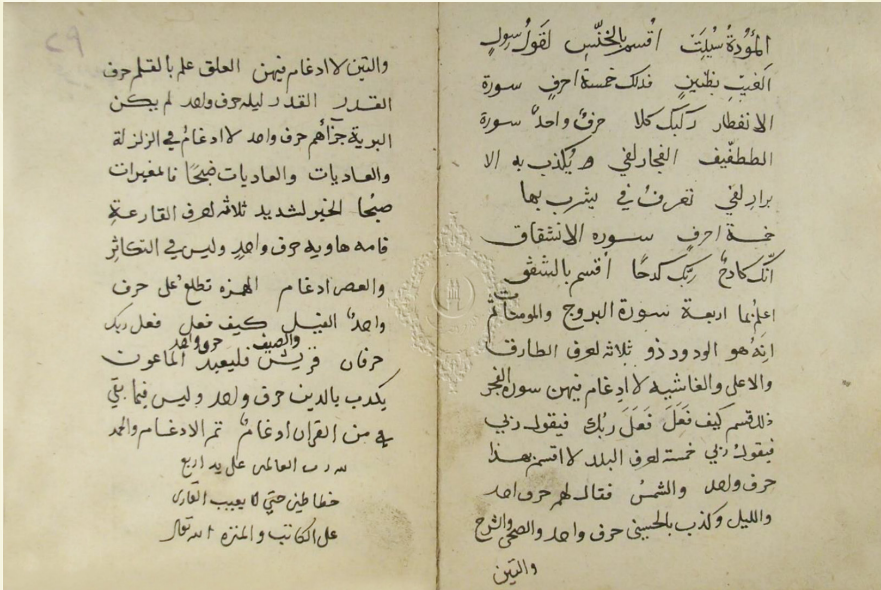 المؤدة سيلت اقسم بالخنس لقول رسول
الغيب بظنين فذلك خمسة احرف سورة
الانفطار ركبك كلا حرف واحد سورة
الططفيف الفجار لفي و يكذب به الا
برار لفي تعرف في يشرب بها
خمسة احرف سوره الانشقاق
انك كادح ربك كدحا أقسم بالشفق
اعلم بما اربعة سورة البروج والمومنات ثم
انه هو الودود ذو ثلاثه احرف الطارق
والاعلى والغاشيه لا ادغام فيهن سورة الفجر
ذلك قسم كيف فعل فعل ربك فيقول ربي
فيقول ربي خمسة احرف البلد لا اقسم بهذا
حرف واحد والشمس فقال لهم حرف احد
والليل وكذب بالحسنى حرف واحد والضحى والشرح
والتين
٢٩
والتين لا ادغام فيهن العلق علم بالقلم حرف
القدر القدر ليله حرف واحد لم يكن
البرية جزآهم حرف واحد لا ادغام في الزلزلة
والعاديات والعاديات ضبحا فالمغيرات
صبحا الخير لشديد ثلاثه احرف القارعة
فامه هاويه حرف واحد وليس في التكاثر
والعصر ادغام الهمزه تطلع على حرف
واحد الفيل كيف فعل فعل ربك
حرفان قريش والصيف فليعبدوا حرف واحد الماعون
يكذب بالدين حرف واحد وليس فيما بقي
في من القران ادغام تم الادغام والحمد
لله رب العالمين على يد اربع
خطاطين حتى لا يعيب القارى
على الكاتب والمنزه الله تعالى